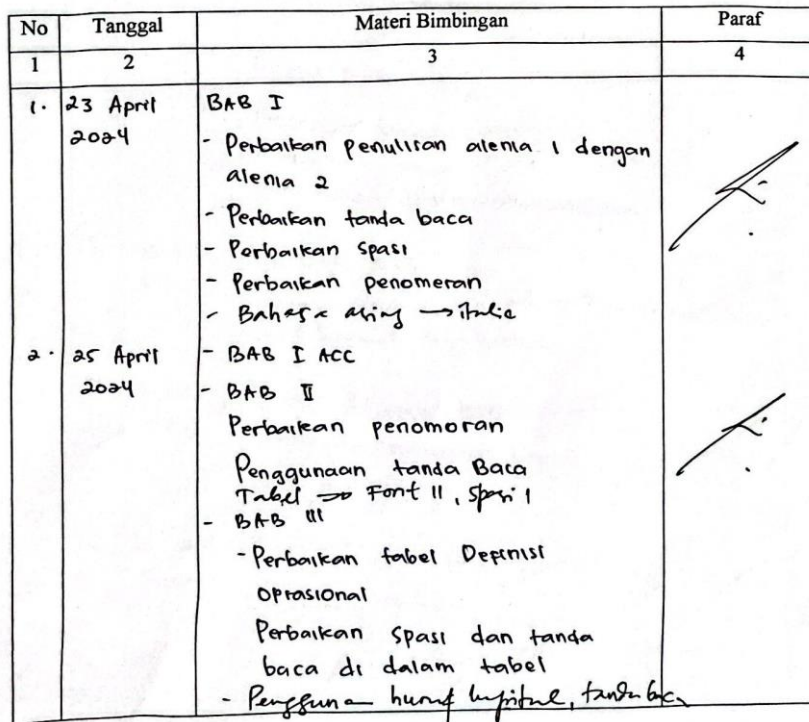 No Tanggal Materi Bimbingan Paraf
1 2 3 4
1. 23 April BAB I
2024
- Perbaikan penulisan alenia 1 dengan
alenia 2
- Perbaikan tanda baca
- Perbaikan spasi
- Perbaikan penomeran
- Bahasa asing → italic
2. 25 April - BAB I ACC
2024 - BAB II
Perbaikan penomoran
Penggunaan tanda Baca
Tabel → Font 11, Spasi 1
- BAB III
- Perbaikan tabel Depinisi
oprasional
Perbaikan spasi dan tanda
baca di dalam tabel
- Penggunan huruf kapital, tanda baca